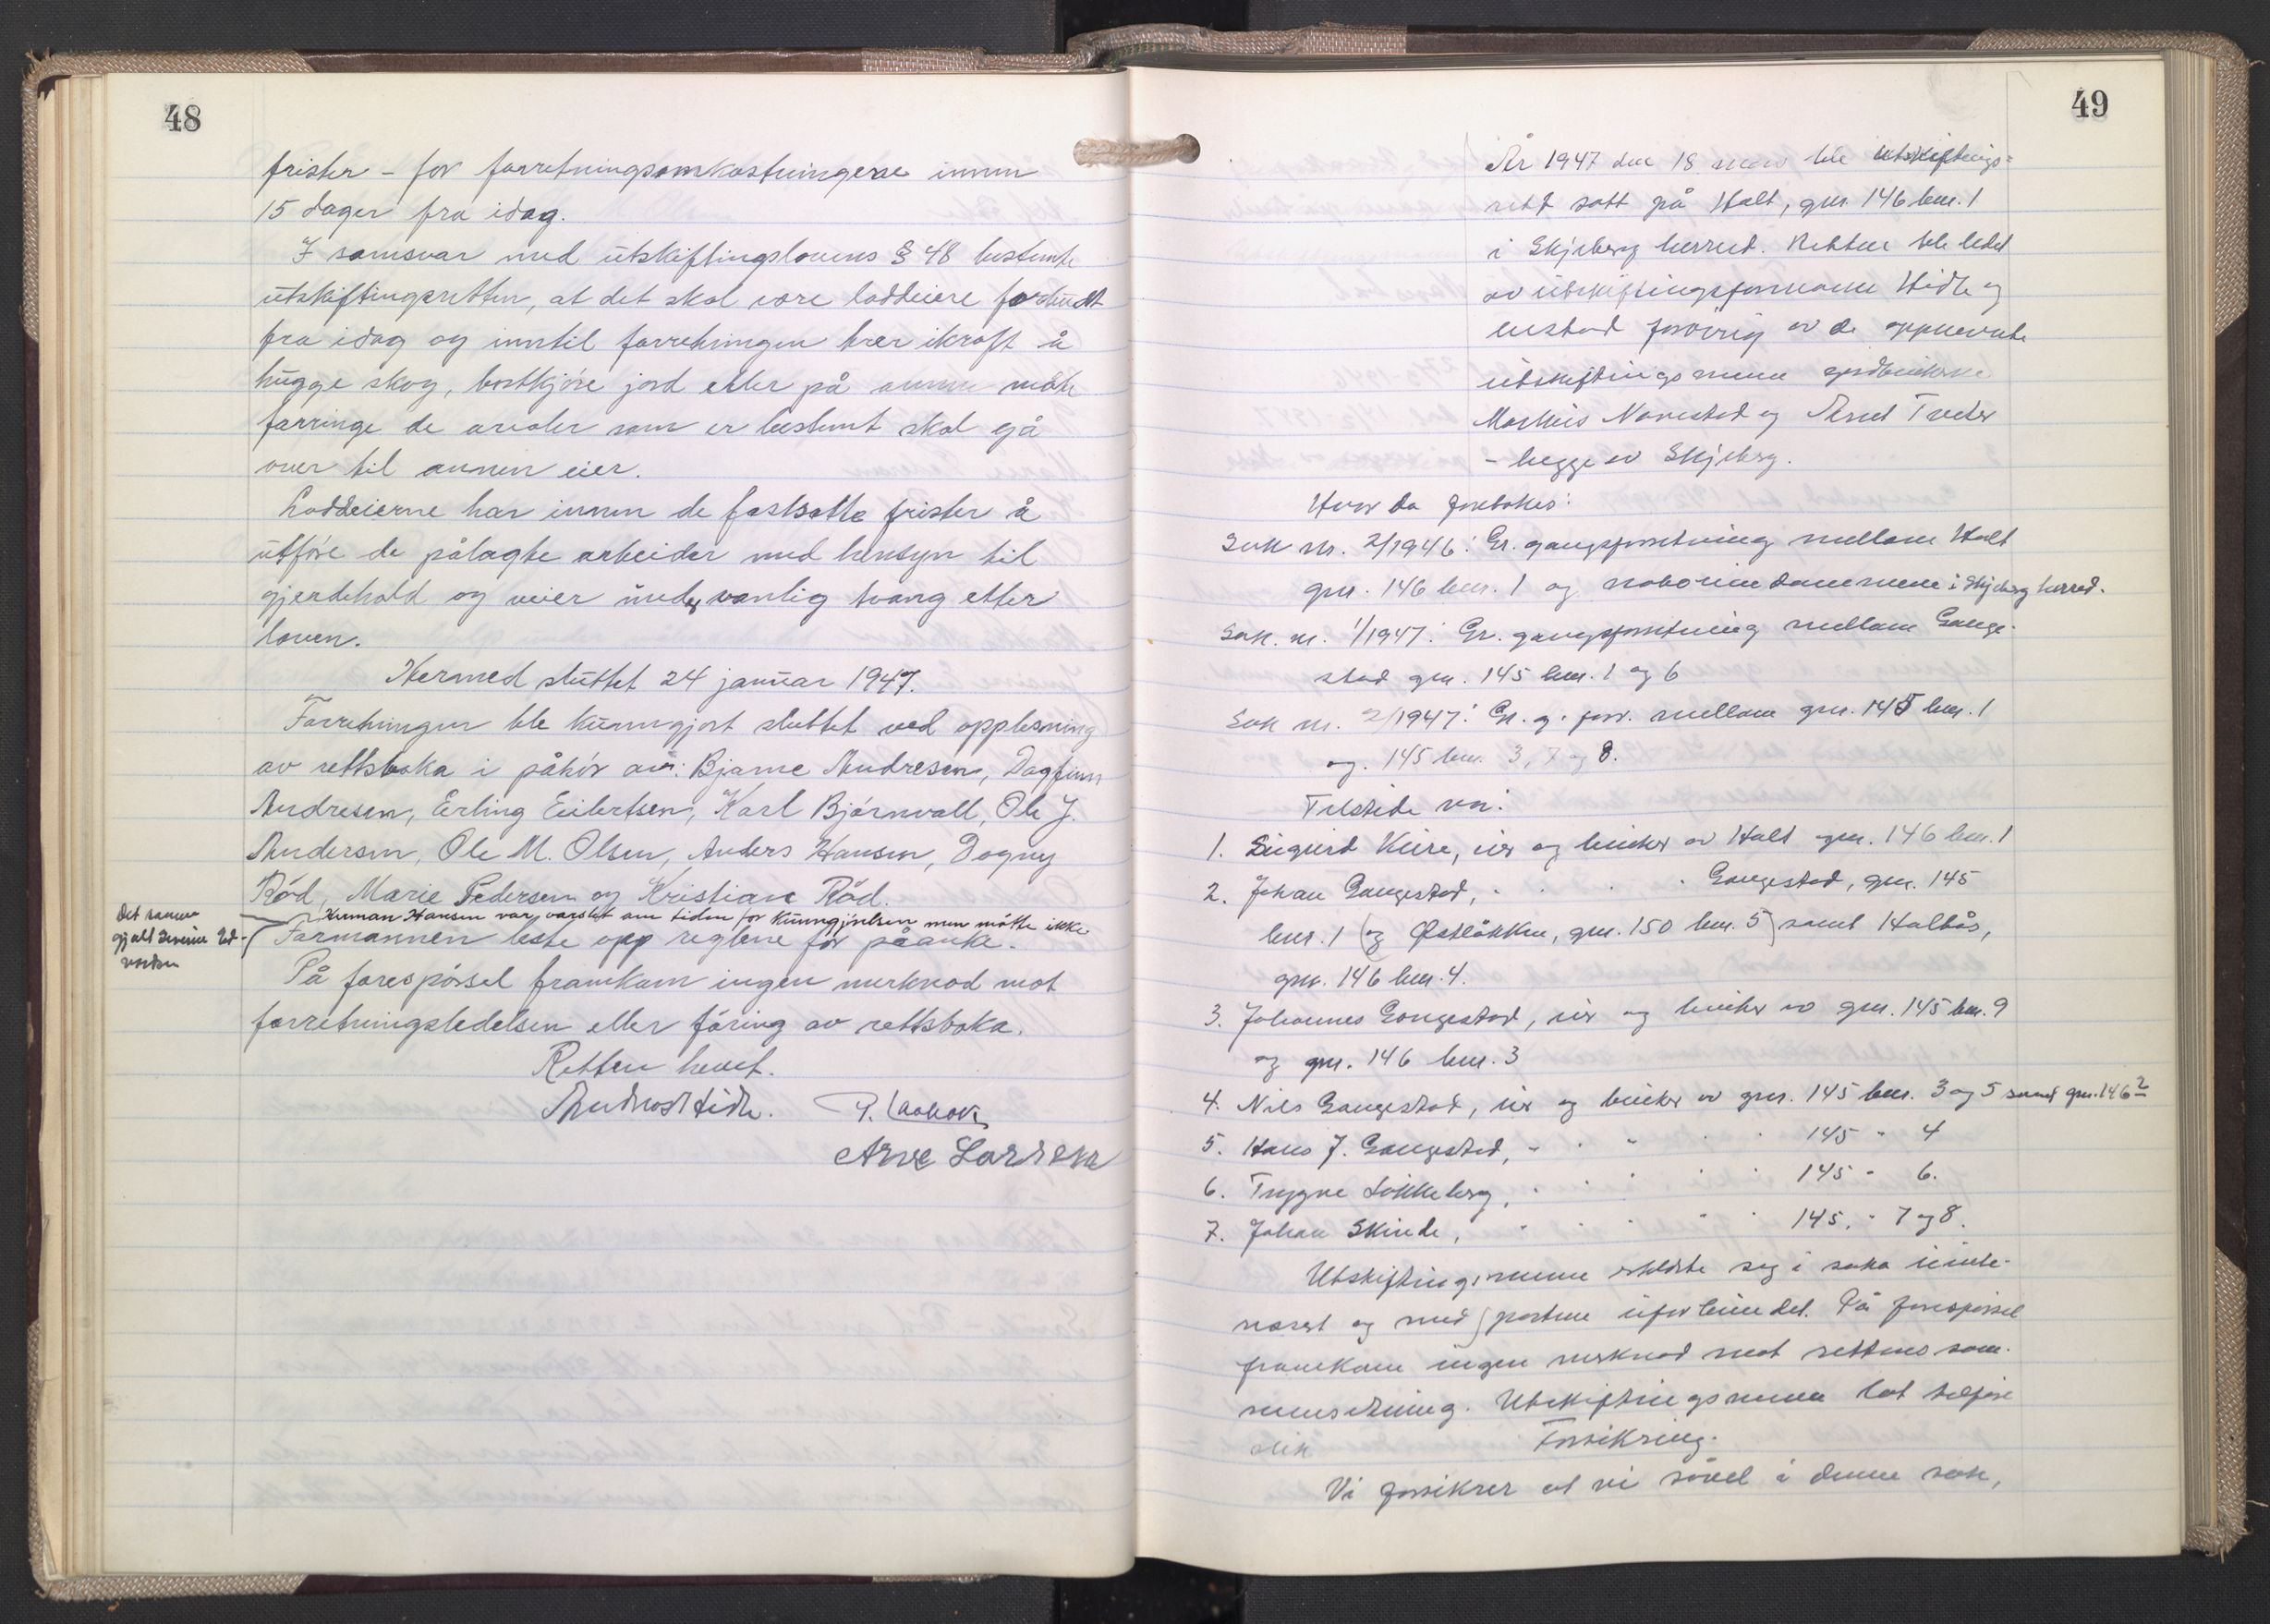 48
frister - for forretningsomkostningene innen
15 dager fra idag.
I samsvar med utskiftingslovens § 48 bestemte
utskiftingsretten, at det skal være loddeiere forbudt
fra idag og inntil forretningen trer ikraft å
hugge skog, bortkjøre jord eller på annen måte
forringe de arealer som er bestemt skal gå
over til annen eier.
Loddeierne har innen de fastsatte frister å
utføre de pålagte arbeider med hensyn til
gjerdehold og veier under vanlig tvang etter
loven.
Hermed sluttet 24 januar 1947.
Forretningen ble kunngjort sluttet ved opplesning
av rettsboka i påhør av: Bjarne Andresen, Dagfinn
Andresen, Erling Eilertsen, Karl Bjørnvall, Ole J.
Andersen, Ole M. Olsen, Anders Hansen, Dagny
Rød, Marie Pedersen og Kristian Rød.
Herman Hansen var varslet om tiden for kunngjørelsen men møtte ikke
Det samme
gjalt Severin Ed-
vardsen
Formannen leste opp reglene for påanke.
På forespørsel framkom ingen merknad mot
forretningsledelsen eller føring av rettsboka.
Retten hevet.
Andreas Hidle.
Arve Larsen
49
År 1947 den 18 mars ble utskiftings-
rett satt på Holt, gnr. 146 bnr. 1
i Skjeberg herred. Retten ble ledet
av utskiftingsformann Hidle og
bestod forøvrig av de oppnevnte
utskiftingsmenn gårdbrukerne
Markus Navestad og Arnt Tveter
- begge av Skjeberg.
Hvor da foretokes:
Sak nr. 2/1946: Gr. gangsforretning mellom Holt
gnr. 146 bnr. 1 og naboeiendommene i Skjeberg herred.
Sak. nr. 1/1947: Gr. gangsforretning mellom Gange-
stad gnr. 145 bnr. 1 og 6
Sak nr. 2/1947: Gr. g. forr. mellom gnr. 145 bnr. 1
og. 145 bnr. 3, 7 og 8.
Tilstede var:
1. Sigurd Kure, eier og bruker av Holt gnr. 146 bnr. 1
2. Johan Gangestad, " " " " Gangestad, gnr. 145
bnr. 1 (og Østløkken, gnr. 150 bnr. 5) samt Holtås,
gnr. 146 bnr. 4.
3. Johannes Gangestad, eier og bruker av gnr. 145 bnr. 9
og gnr. 146 bnr. 3
4. Nils Gangestad, eier og bruker av gnr. 145 bnr. 3 og 5 samt gnr. 146 2
5. Hans J. Gangestad, " " " " " 145 " 4
6. Trygve Løkkeberg, " " " " " 145 " 6.
7. Johan Skinde, " " " " " 145. " 7 og 8.
Utskiftingsmenne erklærte seg i saka uinte-
resert og med partene uforbundet. På forespørsel
framkom ingen merknad mot rettens sam-
mensetning. Utskiftingsmenn lot tilføre
slik Forsikring.
Vi forsikrer at vi såvel i denne sak,